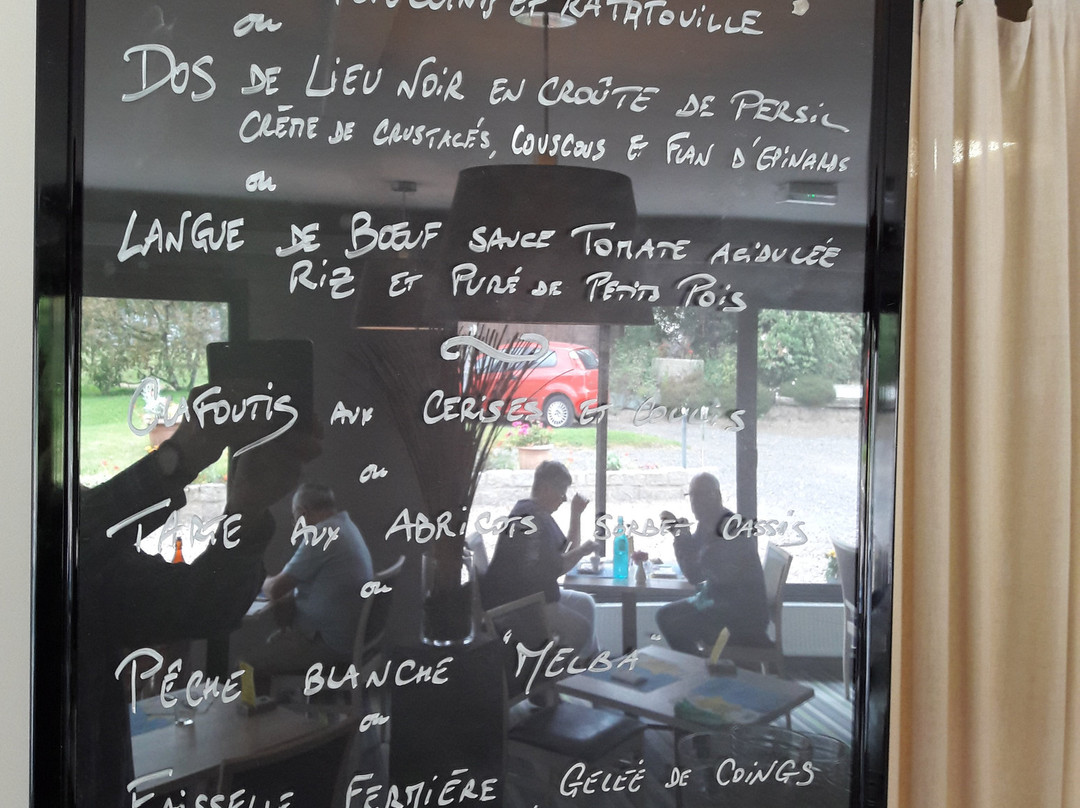 ET RATATOUILLE
ou
DOS DE LIEU NOIR EN CROÛTE DE PERSIL
CRÈME DE CRUSTACÉS, COUSCOUS & FLAN D'EPINARDS
ou
LANGUE DE BŒUF SAUCE TOMATE ACIDULÉE
RIZ ET PURÉ DE PETITS POIS
CLAFOUTIS AUX CERISES ET COULIS
ou
TARTE AUX ABRICOTS SORBET CASSIS
ou
PÊCHE BLANCHE "MELBA"
ou
FAISSELLE FERMIÈRE GELEÉ DE COINGS